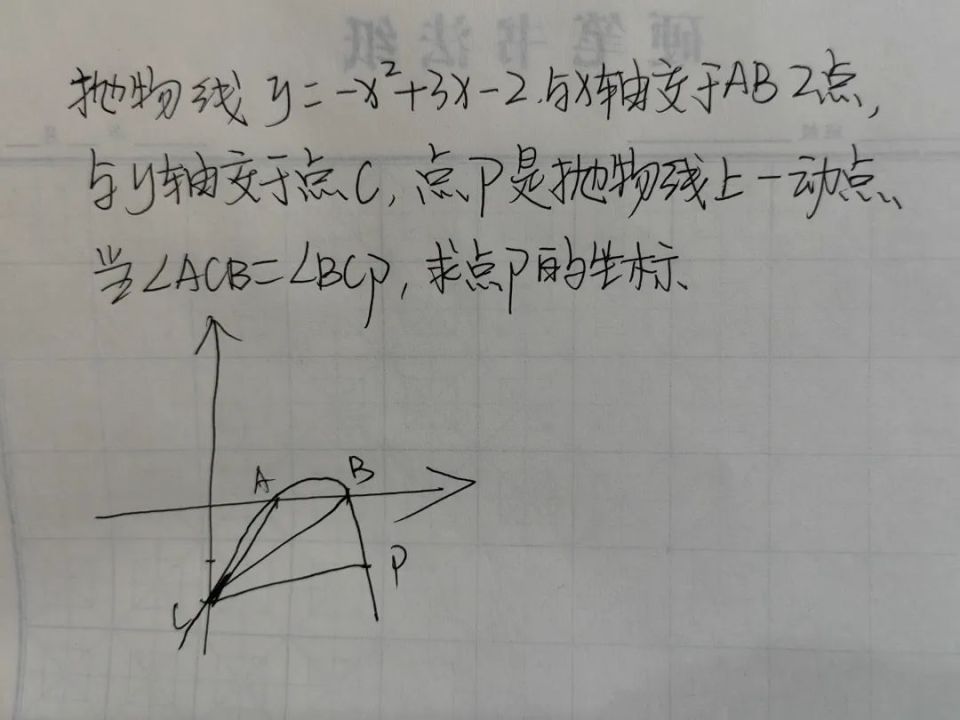 硬笔书法纸
抛物线 y=-x²+3x-2.与x轴交于AB 2点,
与y轴交于点C,点P是抛物线上一动点、
当∠ACB=∠BCP,求点P的坐标、
A
B
P
C